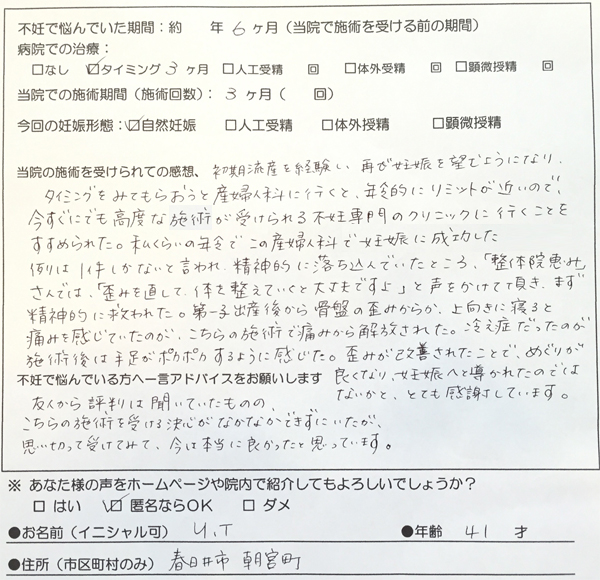 不妊で悩んでいた期間：約　　年 6ヶ月（当院で施術を受ける前の期間）
病院での治療：
□なし　☑タイミング 3ヶ月　□人工受精　回　□体外受精　回　□顕微授精　回
当院での施術期間（施術回数）：3ヶ月（　　回）
今回の妊娠形態：☑自然妊娠　□人工受精　□体外受精　□顕微授精
当院の施術を受けられての感想、初期流産を経験し、再び妊娠を望むようになり、
タイミングをみてもらおうと産婦人科に行くと、年令的にリミットが近いので、
今すぐにでも高度な施術が受けられる不妊専門のクリニックに行くことを
すすめられた。私くらいの年令でこの産婦人科で妊娠に成功した
例は1件しかないと言われ、精神的に落ち込んでいたところ、「整体院恵み」
さんでは、「歪みを直して、体を整えていくと大丈夫ですよ」と声をかけて頂き、まず
精神的に救われた。第一子出産後から骨盤の歪みからか、上向きに寝ると
痛みを感じていたのが、こちらの施術で痛みから解放された。冷え症だったのが
施術後は手足がポカポカするように感じた。歪みが改善されたことで、めぐりが
良くなり、妊娠へと導かれたのでは
ないかと、とても感謝しています。
不妊で悩んでいる方へ一言アドバイスをお願いします
友人から評判は聞いていたものの、
こちらの施術を受ける決心がなかなかできずにいたが、
思い切って受けてみて、今は本当に良かったと思っています。
※ あなた様の声をホームページや院内で紹介してもよろしいでしょうか？
□ はい　☑ 匿名ならOK　□ ダメ
●お名前（イニシャル可） Y.T　●年齢 41 才
●住所（市区町村のみ） 春日井市 朝宮町